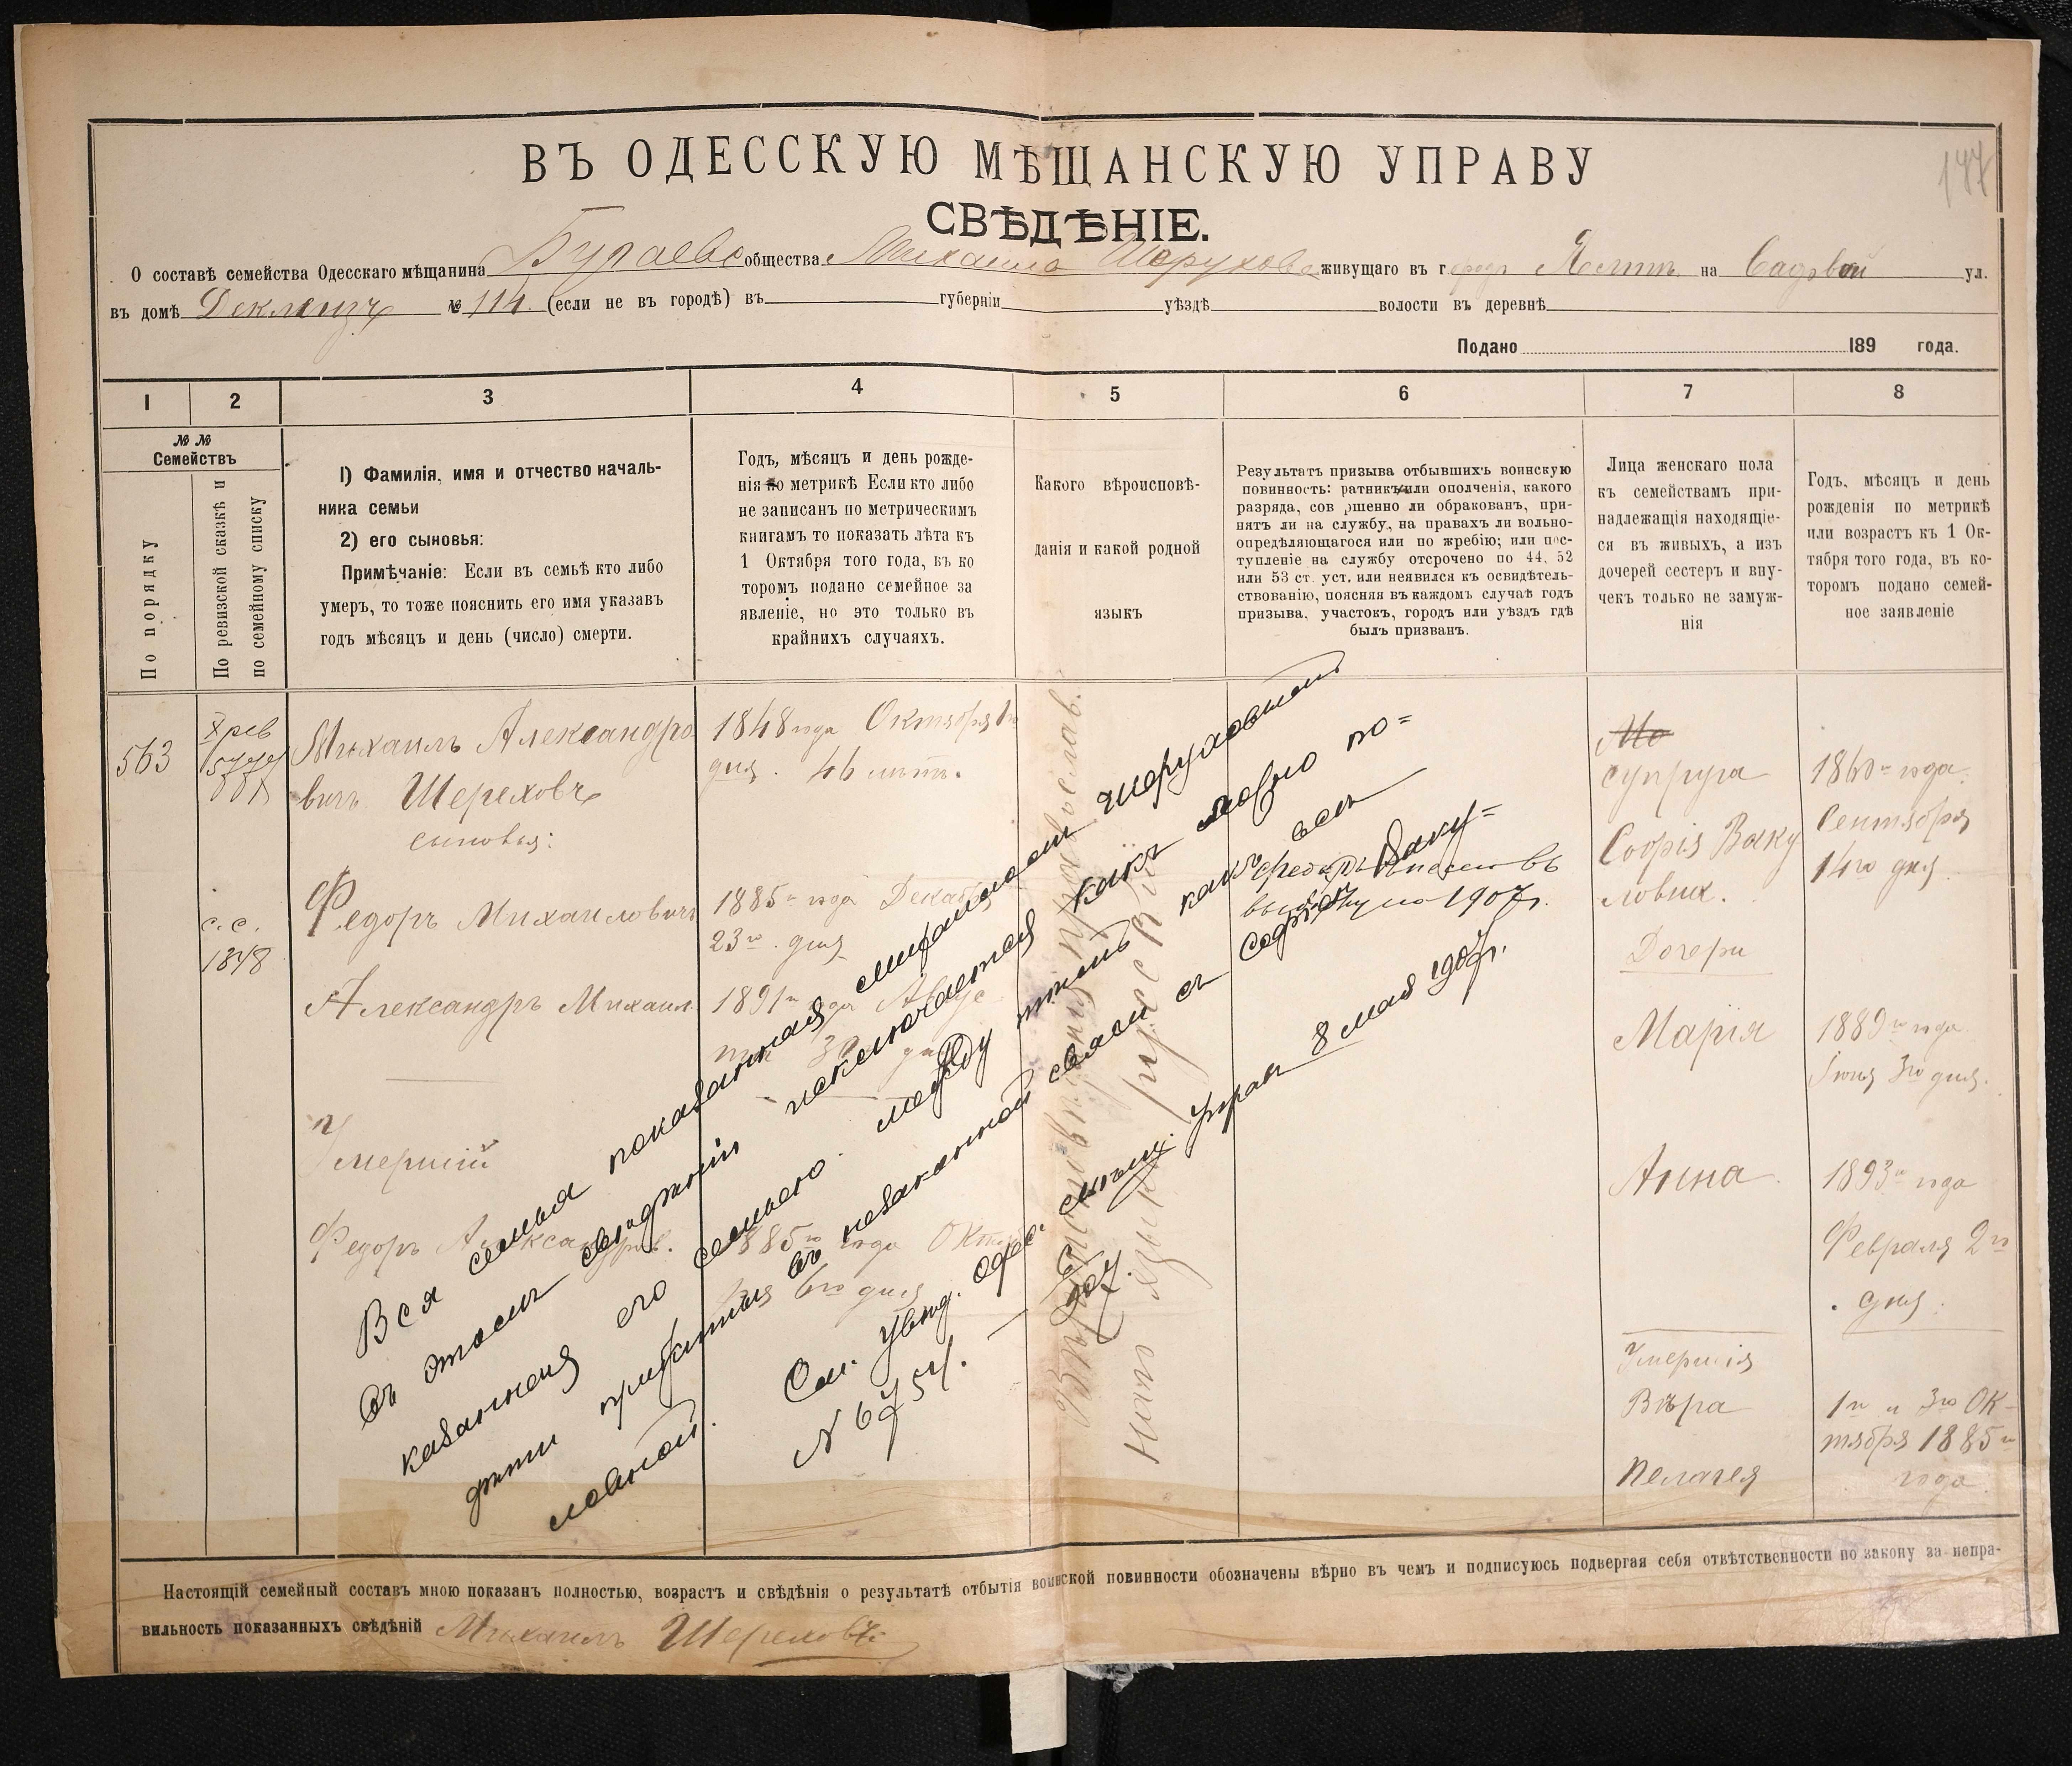 147
ВЪ ОДЕССКУЮ МѢЩАНСКУЮ УПРАВУ
СВѢДѢНІЕ.
О составѣ семейства Одесскаго мѣщанина общества Михаила Шерухова живущаго въ городѣ на Садовой ул.
въ домѣ № 114. (если не въ городѣ) въ губерніи уѣздѣ волости въ деревнѣ
Подано 189 года.
1 2 3 4 5 6 7 8
№ № Семействъ
По порядку
По ревизской сказкѣ и
по семейному списку
1) Фамилія, имя и отчество началь-
ника семьи
2) его сыновья:
Примѣчаніе: Если въ семьѣ кто либо
умеръ, то тоже пояснить его имя указавъ
годъ мѣсяцъ и день (число) смерти.
Годъ, мѣсяцъ и день рожде-
нія по метрикѣ Если кто либо
не записанъ по метрическимъ
книгамъ то показать лѣта къ
1 Октября того года, въ ко
торомъ подано семейное за
явленіе, но это только въ
крайнихъ случаяхъ.
Какого вѣроисповѣ-
данія и какой родной
языкъ
Результатъ призыва отбывшихъ воинскую
повинность: ратникъ или ополченія, какого
разряда, сов ршенно ли обракованъ, при-
нятъ ли на службу, на правахъ ли вольно-
опредѣляющагося или по жребію; или пос-
тупленіе на службу отсрочено по 44, 52
или 53 ст. уст. или неявился къ освидѣтель-
ствованію, поясняя въ каждомъ случаѣ годъ
призыва, участокъ, городъ или уѣздъ гдѣ
былъ призванъ.
Лица женскаго пола
къ семействамъ при-
надлежащія находящіе-
ся въ живыхъ, а изъ
дочерей сестеръ и вну-
чекъ только не замуж-
нія
Годъ, мѣсяцъ и день
рожденія по метрикѣ
или возрастъ къ 1 Ок-
тября того года, въ ко-
торомъ подано семей-
ное заявленіе
563
X рев
с. с.
1848
Михаилъ Александро
вичъ Шереховъ
сыновья:
Федоръ Михаиловичъ
Александръ Михаил.
Умершій
Федоръ Александров.
1848 года Октября 1го
дня. 46 лѣтъ.
1885го года Декабр
23го дня
1891го года Авгус
та 30 дня
1885го года Октяб
ря 6го дня
Вѣроисповѣданія православ.
наго языкъ русскій
Федоръ внесенъ въ
на 1907 г.
супруга
СофіяВаку
ловна.
Дочери
Марія
Анна
Умершія
Вѣра
Пелагея
1860го года
Сентября
14го дня
1889го года
Іюня 3го дня.
1893го года
Февраля 2го
дня.
1го и 3го Ок-
тября 1885го
года
Вся семья показанная Шеруховыми
въ этомъ свѣдѣніи исключается какъ ложно по-
казанная его семьею. Между тѣмъ какъ всѣ
дѣти прижиты въ незаконной связи съ Софіей Ваку=
ловной.
См. увѣд. Одес. мѣщ. управ. 8 мая 1907 г.
№ 6754. — 907.
Настоящій семейный составъ мною показанъ полностью, возрастъ и свѣдѣнія о результатѣ отбытія воинской повинности обозначены вѣрно въ чемъ и подписуюсь подвергая себя отвѣтственности по закону за непра-
вильность показанныхъ свѣдѣній Михаилъ Шереховъ